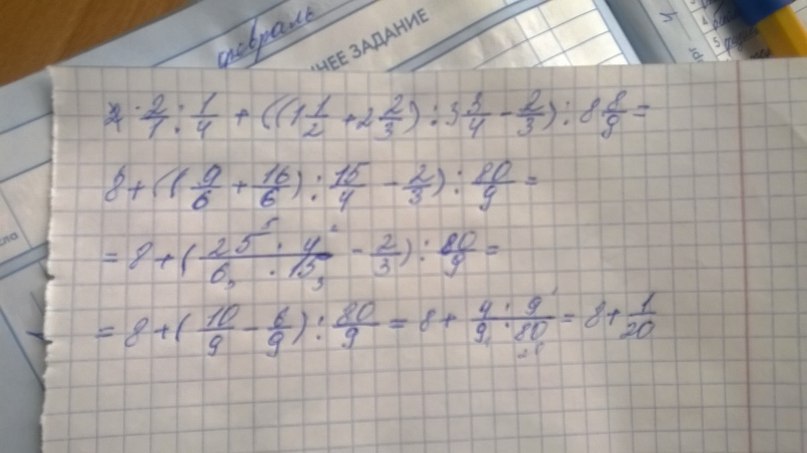 февраль
НЕЕ ЗАДАНИЕ
2/1 : 1/4 + ((1 1/2 + 2 2/3) : 3 3/4 - 2/3) : 8 8/9 =
8 + ((9/6 + 16/6) : 15/4 - 2/3) : 80/9 =
= 8 + (25 · 4/6 · 15 - 2/3) : 80/9 =
= 8 + (10/9 - 6/9) : 80/9 = 8 + 4 · 9/9 · 80 = 8 + 1/20